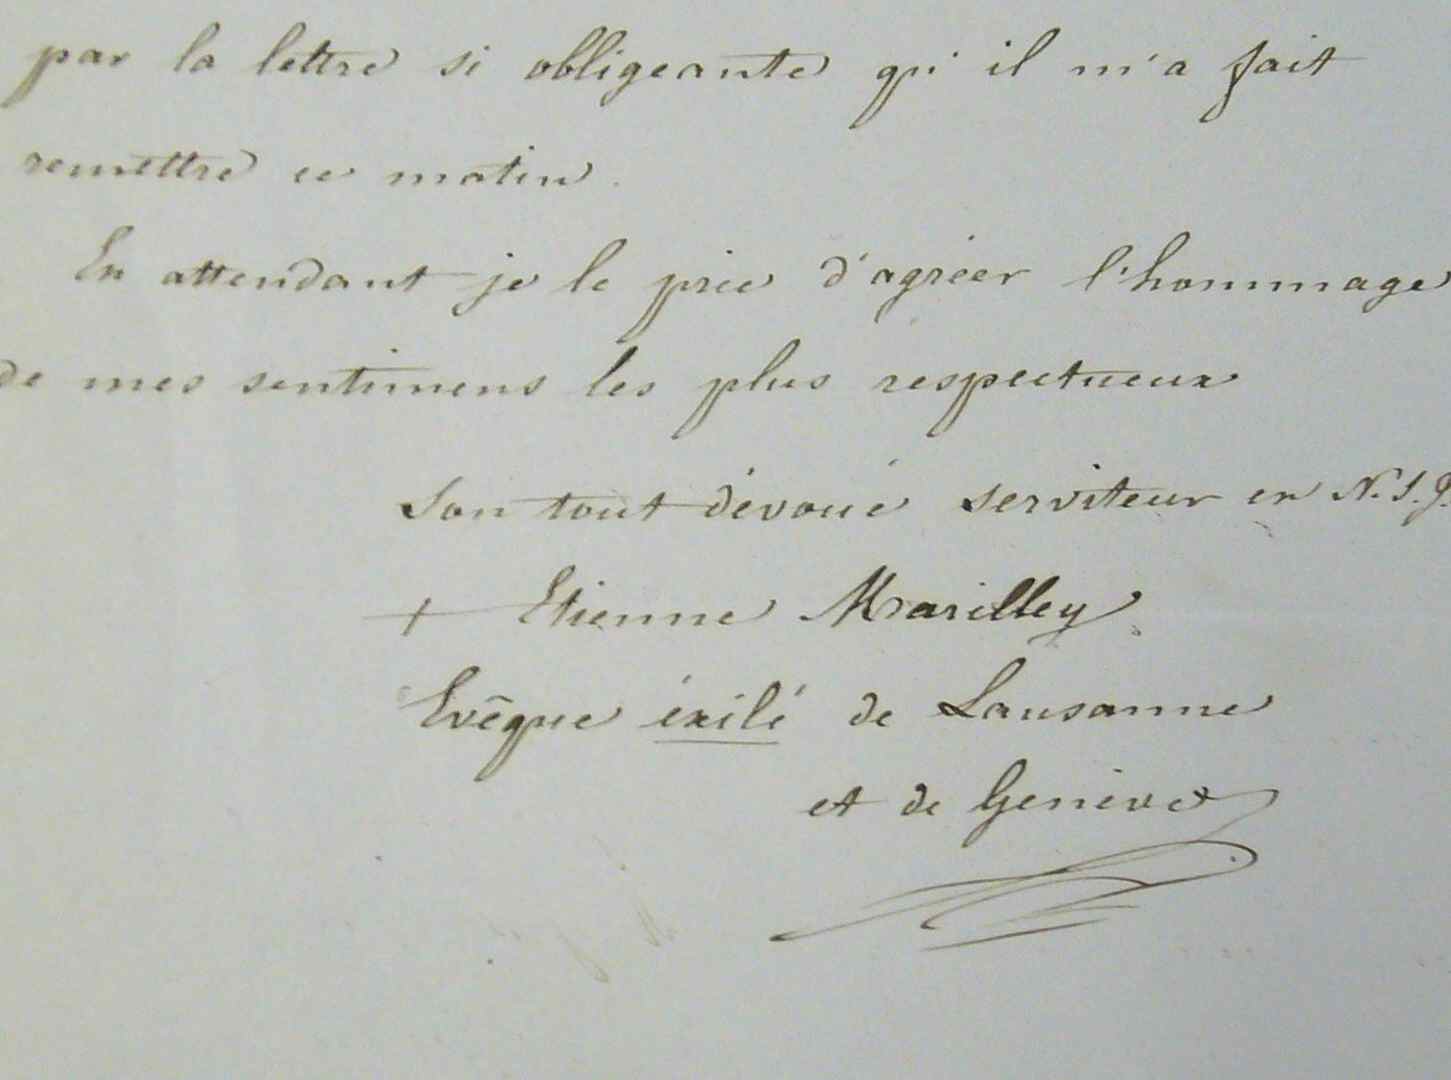 par la lettre si obligeante qu'il m'a fait
remettre ce matin.
En attendant je le prie d'agréer l'hommage
de mes sentimens les plus respectueux
Son tout dévoué serviteur en N. S. J.
+ Etienne Marilley
Evêque éxilé de Lausanne
et de Genève